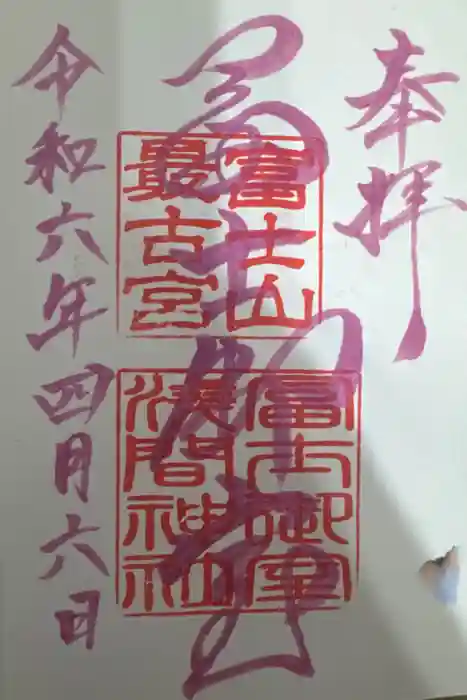 奉拝
富士御室
富士山
最古宮
冨士御室
浅間神社
令和六年四月六日